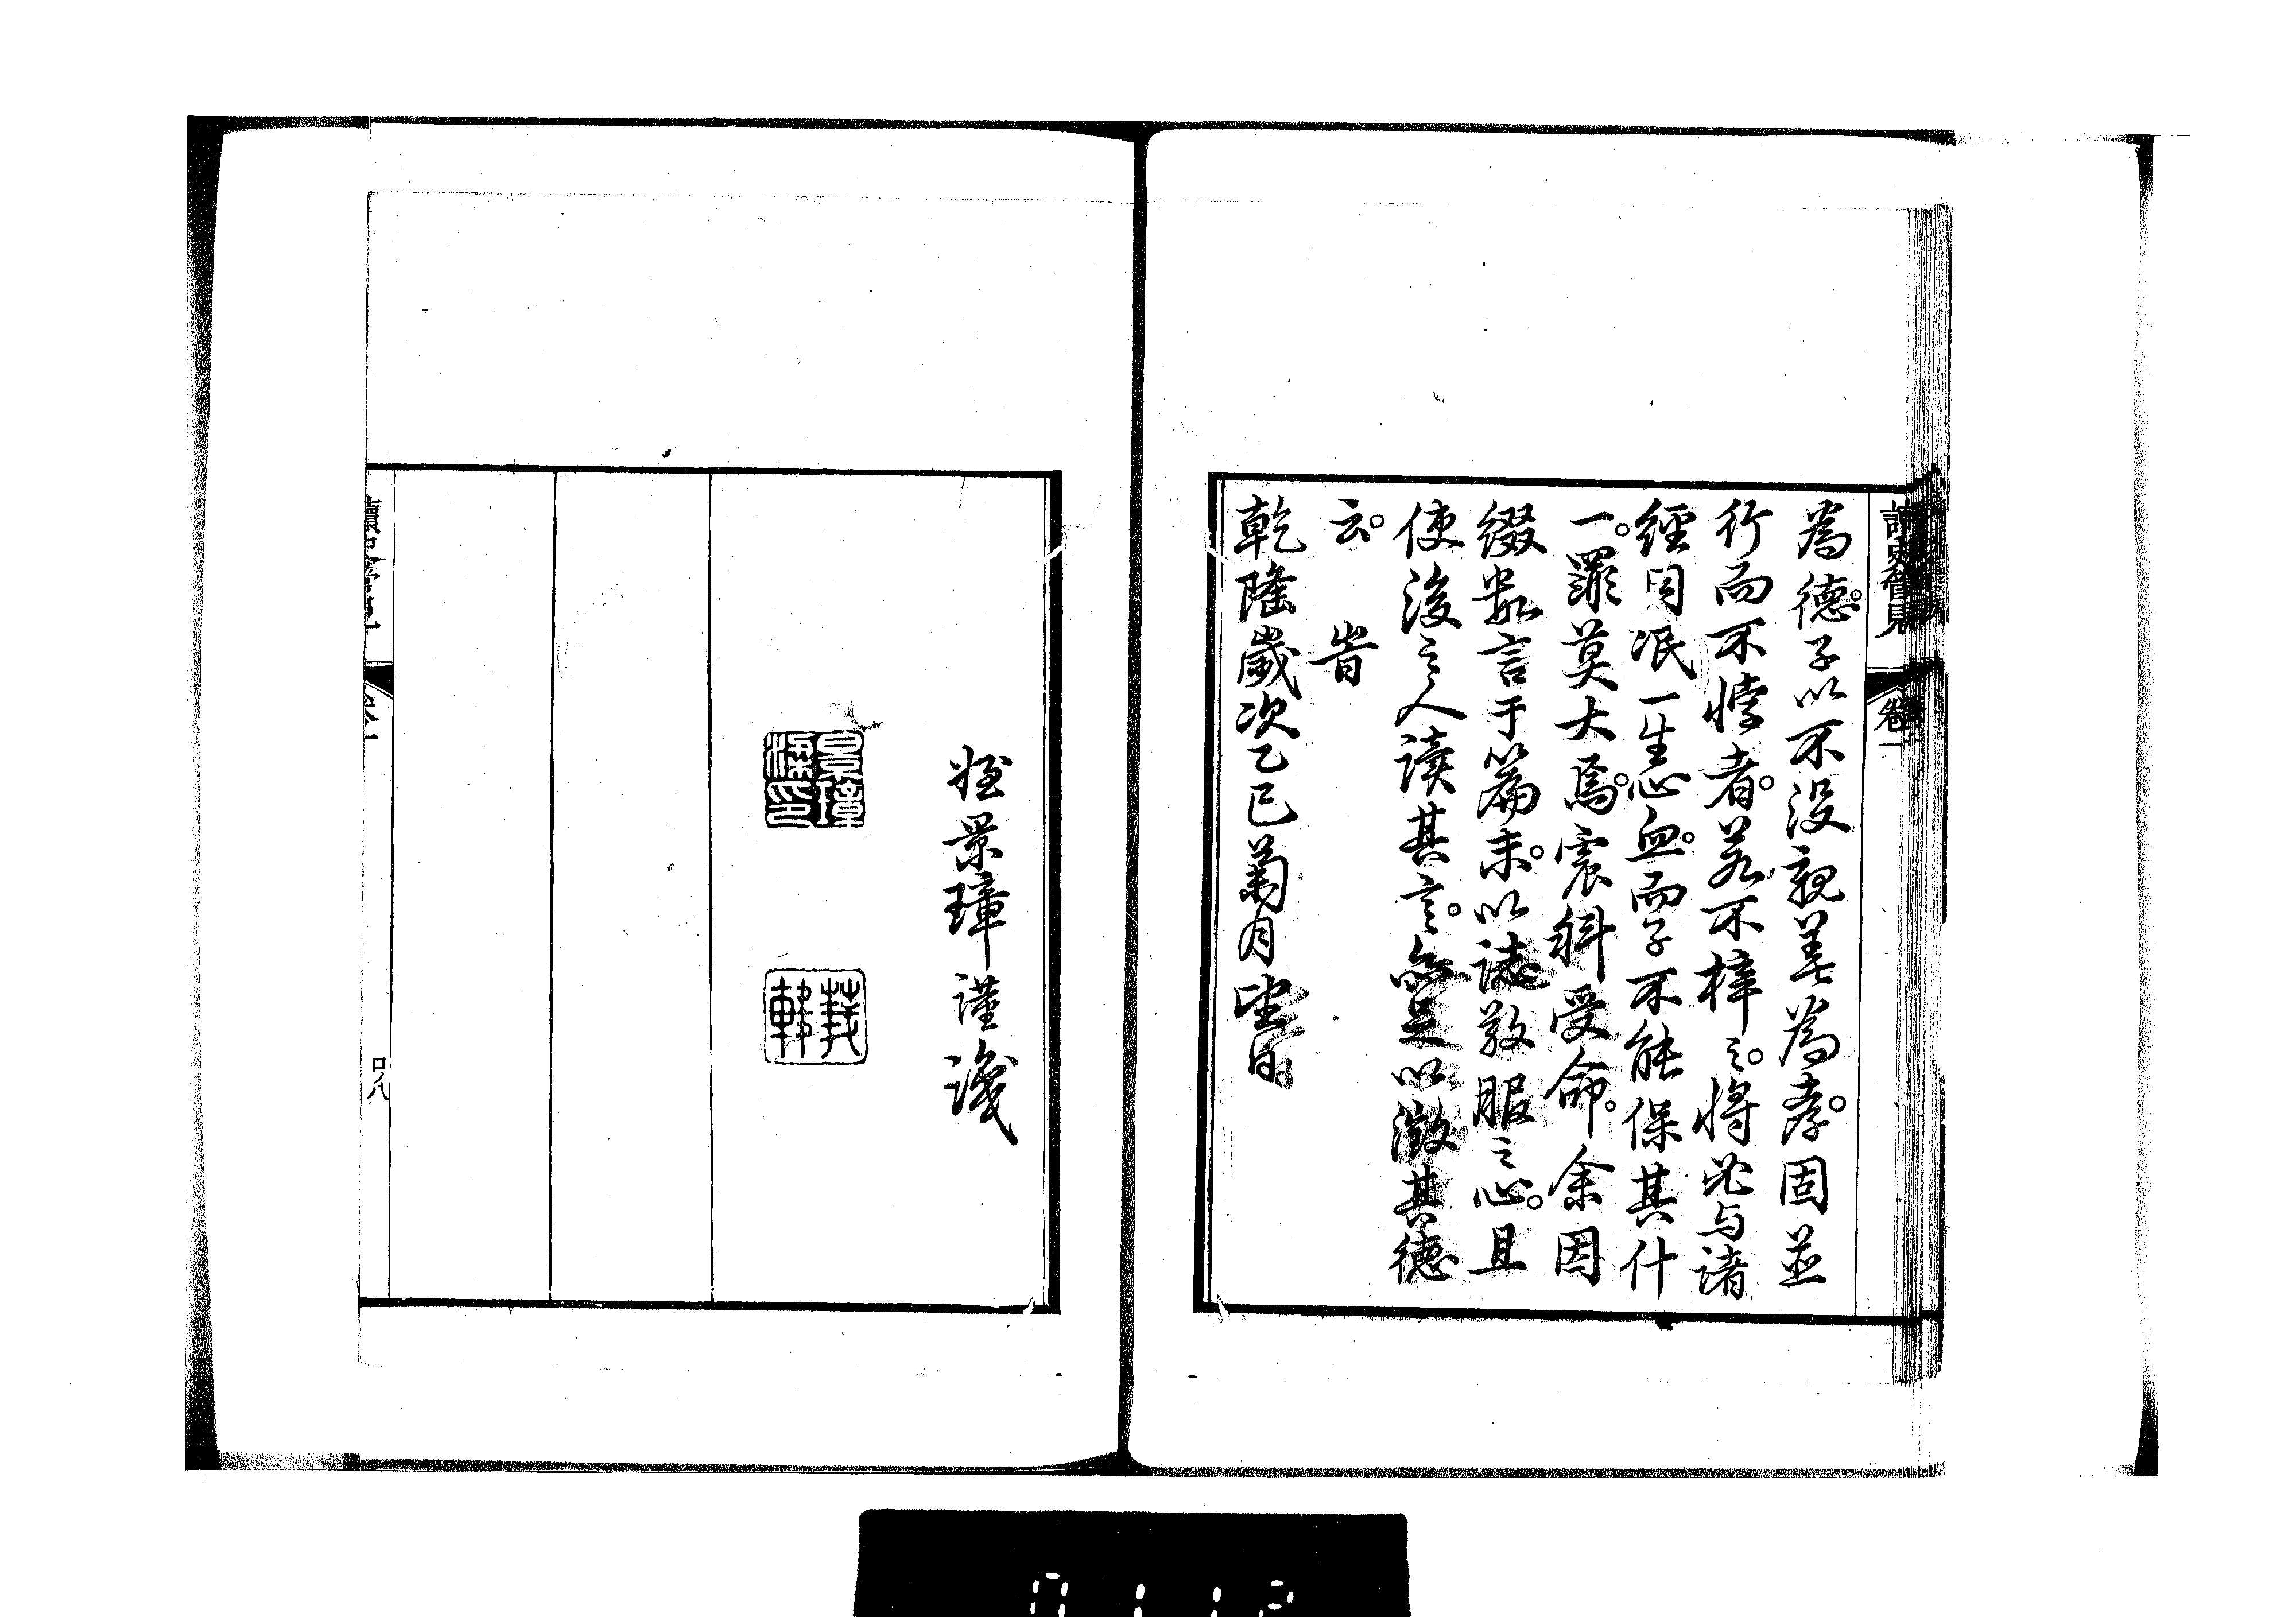 讀史管見 卷一
為德。子以不沒親善為孝。固並
行而不悖者。若不梓之。將必与諸
經同泯。一生心血。而子不能保其什
一。罪莫大焉。震科受命。余因
綴數言于篇末。以誌敬服之心。且
使後之人讀其言。無足以徵其德
云。 旹
乾隆歲次乙巳菊月望日
姪景璋謹識
景璋
印
口ノ八
0112